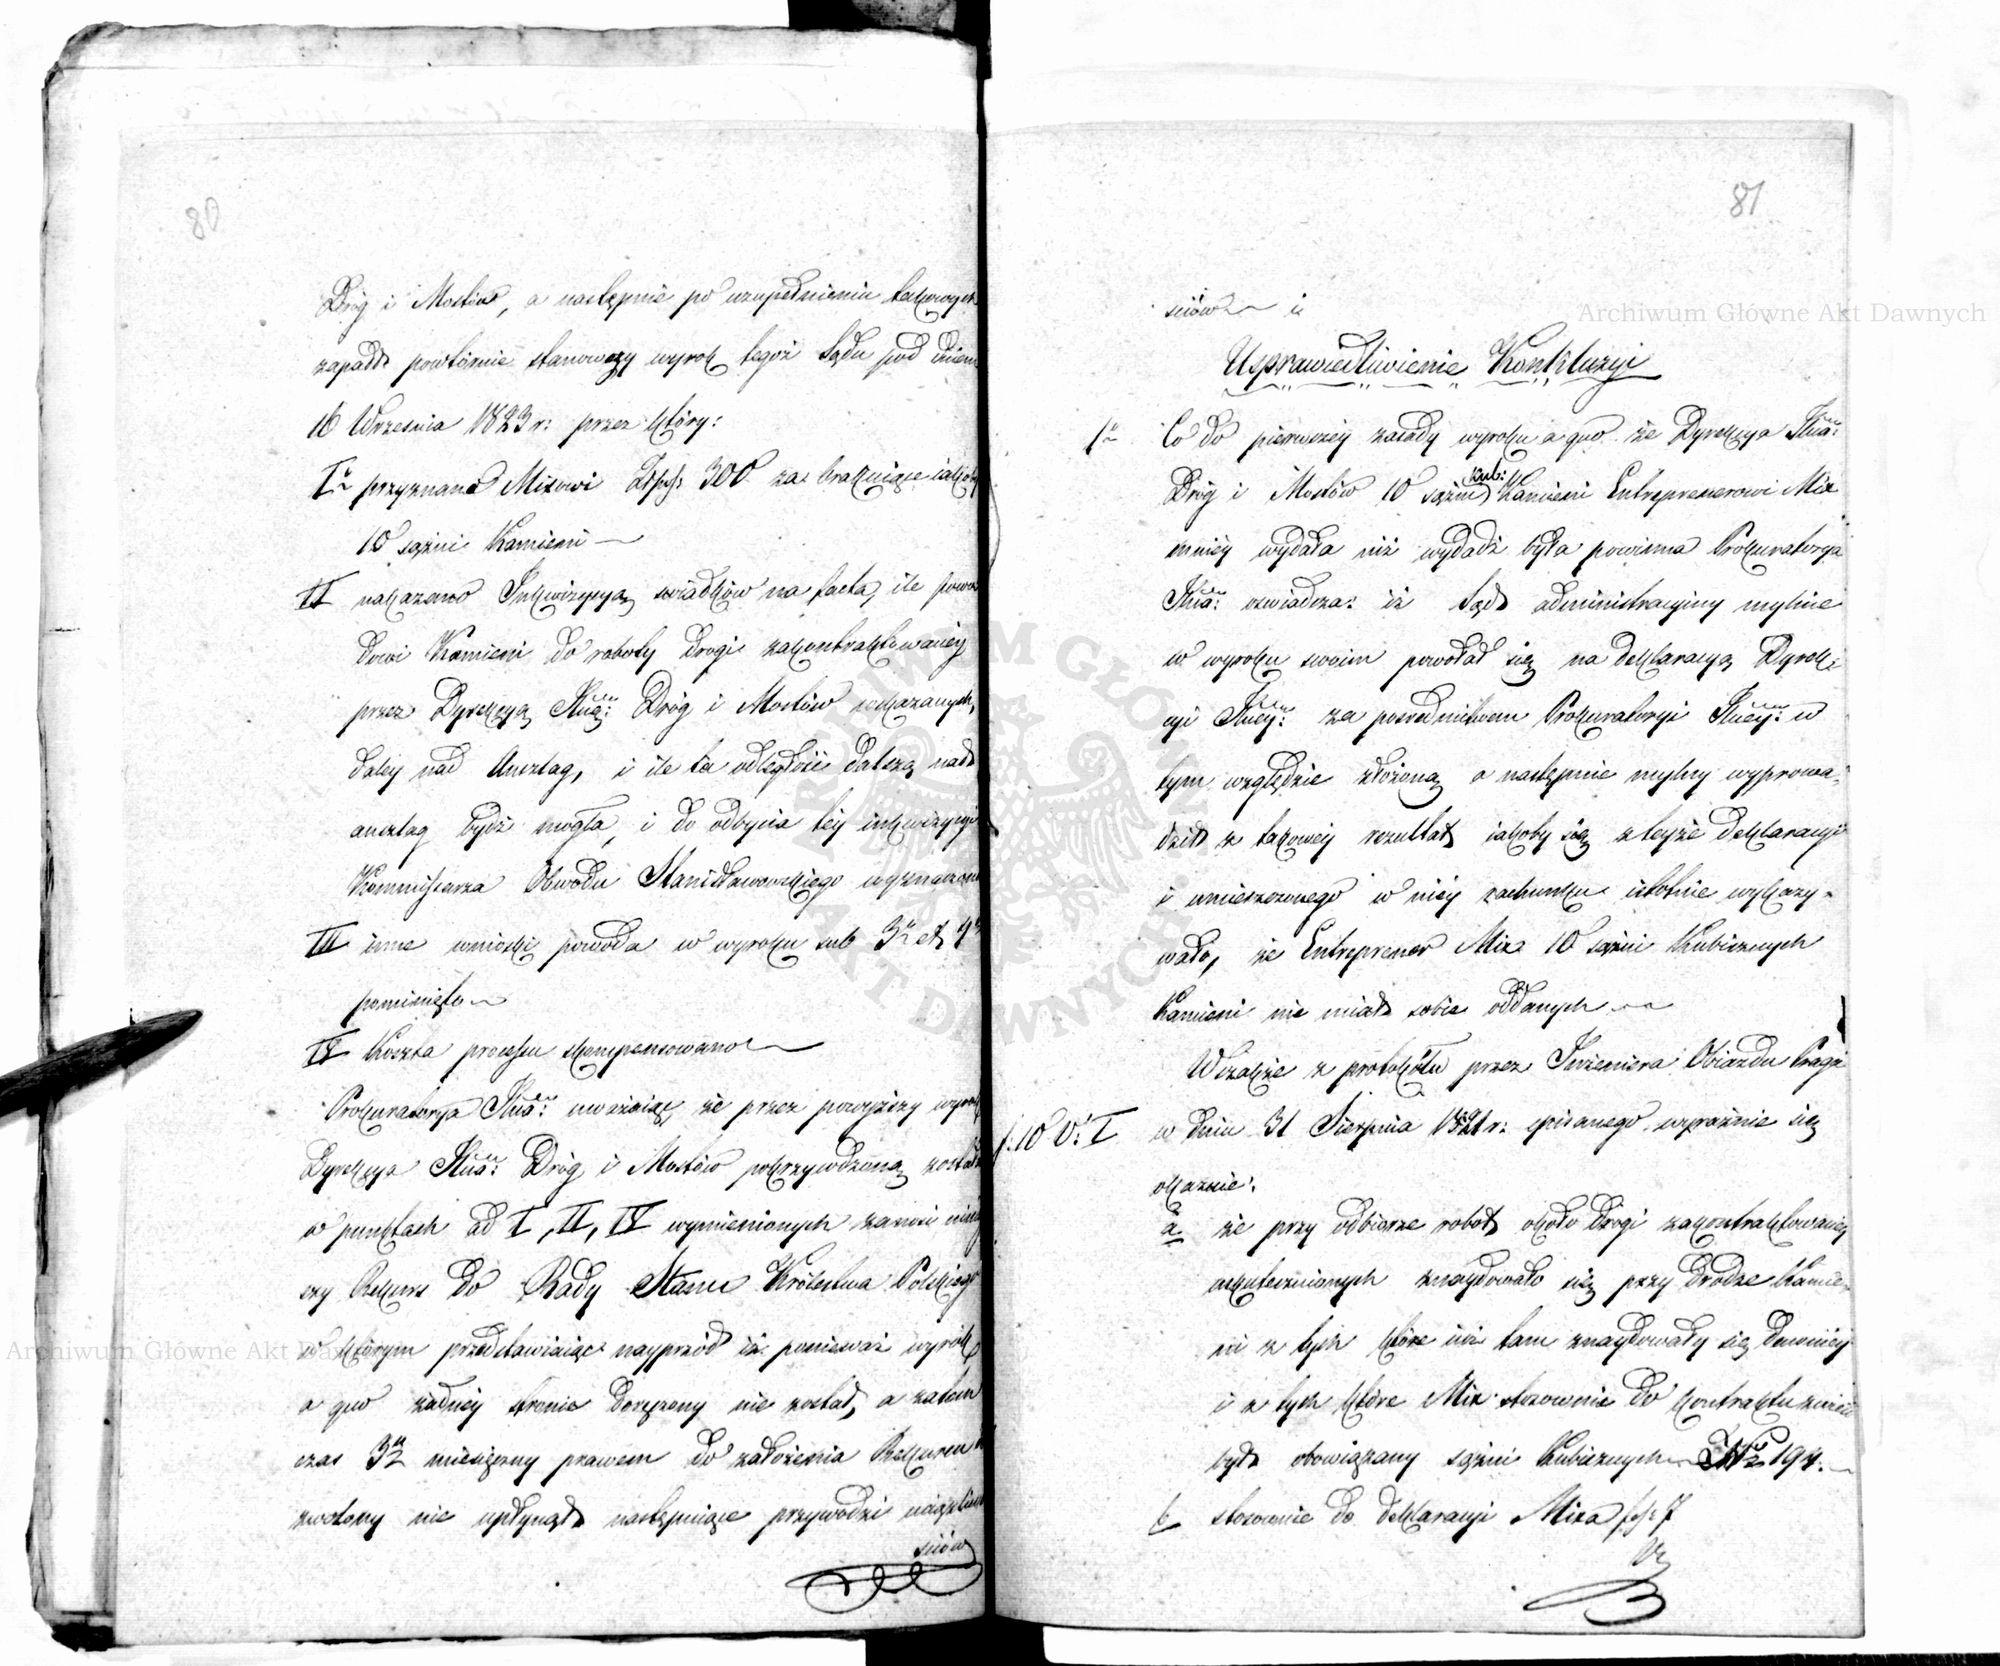 80
Dróg i Mostów, a następnie po uzupełnieniu takowych
zapadł powtórnie stanowczy wyrok tegoż Sądu pod dniem
16 Września 1823 r: przez który:
I° przyznano Mixowi Złp: 300 za brakuiące iakoby
10 sążni Kamieni
II nakazano Inkwizycyą świadków na facta, ile
Kamieni do roboty drogi zakontraktowaney
przez Dyrekcyą Jlną: Dróg i Mostów wskazanych,
daley nad Anszlag, i ile ta odległość dalszą nad
anszlag bydź mogła, i do odbycia tey inkwizycyi
Kommissarza Obwodu Stanisławowskiego wyznaczono
III inne wnioski powoda w wyroku sub 3° et 4°
pominięto
IV Koszta processu skompensowano
Prokuratorya Jlna: uważaiąc, że przez powyższy wyrok
Dyrekcya Jlna: Dróg i Mostów pokrzywdzoną została
w punktach ad I, II, IV wymienionych zanosi niniey
szy Rekurs do Rady Stanu Królestwa Polskiego
w którym przedstawiaiąc nayprzód iż ponieważ wyrok
a quo żadney stronie doręczony nie został, a zatem
czas 3 miesięczny prawem do założenia Rekursu
zwolony nie upłynął następuiące przywodzi uciążliwo
ściów
81
Archiwum Główne Akt Dawnych
ściów
Usprawiedliwienie Konkluzyi
1° Co do pierwszey zasady wyroku a quo że Dyrekcya Jlna:
Dróg i Mostów 10 sążni Kub: Kamieni Entreprenerowi Mix
mniey wydała niż wydadź była powinna Prokuratorya
Jlna: oświadcza: iż Sąd administracyiny mylnie
w wyroku swoim powołał się na deklaracyą Dyrek-
cyi Jlney: za posrednictwem Prokuratoryi Jlney: w
tym względzie złożoną a następnie mylny wyprowa-
dził z takowey rezultat iakoby się z teyże deklaracyi
i umieszczonego w niey rachunku istotnie wykazy-
wało, że Entreprener Mix 10 sążni Kubicznych
Kamieni nie miał sobie oddanych
Wszakże z protokółu przez Inżeniera Obiazdu Praga
f: 10 V: I w dniu 31 Sierpnia 1821 r: spisanego wyraźnie się
okazuie:
a że przy odbiorze robot około drogi zakontraktowaney
uskutecznionych znaydowało się przy drodze Kamie-
ni z tych które iuż tam znaydowały się dawniey
i z tych które Mix stosownie do kontraktu
był obowiązany sążni Kubicznych 194.
b stosownie do deklaracyi Mixa
Archiwum Główne Akt Dawnych
ARCHIWUM GŁÓWNE AKT DAWNYCH